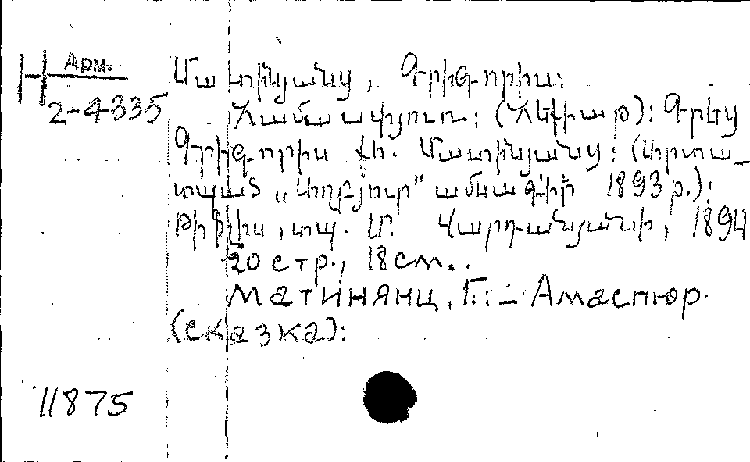 Арм.
2-4335
Մատինյանց, Գրիգորիս:
Համասփյուռ: (Հեքիաթ): Գրեց
Գրիգորիս Քհ. Մատինյանց: (Արտա_
տպած „Աղբյուր" ամսագրի 1893թ.):
Թիֆլիս, տպ. Մ. Վարդանյանի, 1894
20 стр., 18 см..
Матинянц, Г.: – Амаспюр.
(сказка):
11875